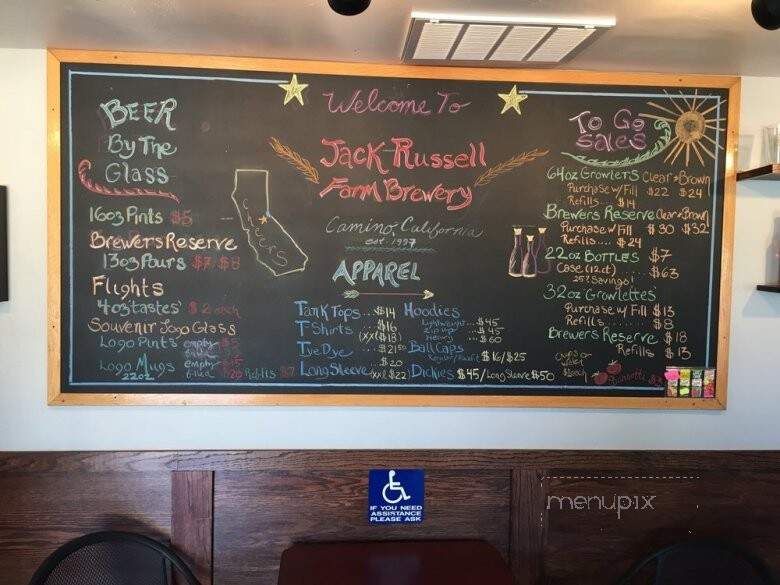 BEER
By The
Glass
16oz Pints $5
Brewers Reserve
13oz Pours $7-$8
Flights
4oz 'tastes' $2 each
Souvenir Logo Glass
Logo Pints empty
Logo Mugs empty
22oz filled $20 Refills $7
Welcome To
Jack Russell
Farm Brewery
Camino, California
est. 1997
cheers
APPAREL
Tank Tops $14
T Shirts $16
(xx($18)
Tye Dye $21.50
$20
Long Sleeve (xxl $22)
Hoodies
Lightweight $45
Zip up $45
Heavy $60
Ball Caps
$16/$25
Dickies $45/Long Sleeve $50
To Go
Sales
64oz Growlers Clear & Brown
Purchase w/Fill $22 $24
Refills.... $14
Brewers Reserve Clear & Brown
Purchase w/Fill $30 $32
Refills.... $24
22oz BOTTLES $7
Case (12ct).... $63
25¢ Savings!
32oz Growlettes
Purchase w/Fill $13
Refills... $8
Brewers Reserve $18
Refills $13
IF YOU NEED
ASSISTANCE
PLEASE ASK
menupix